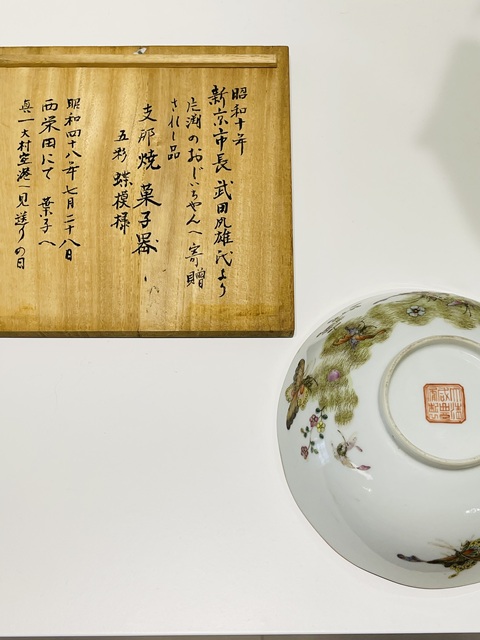 昭和十年
新京市長 武田胤雄氏より
片淵のおじいちゃんへ寄贈
された品
支那焼 菓子器
五彩 蝶模様
昭和四十八年七月二十八日
西栄田にて 葉子へ
真一大村空港へ見送りの日